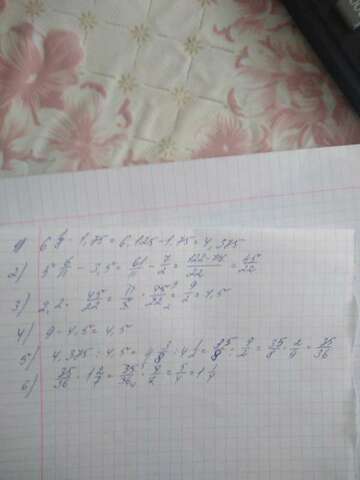 1) 6 1/8 - 1,75 = 6,125 - 1,75 = 4,375
2) 5 6/11 - 3,5 = 61/11 - 7/2 = 122-77/22 = 45/22
3) 2,2 · 45/22 = 11/5 · 45/22 = 9/2 = 4,5
4) 9 - 4,5 = 4,5
5) 4,375 : 4,5 = 4 3/8 : 4 1/2 = 35/8 : 9/2 = 35/8 · 2/9 = 35/36
6) 35/36 · 1 2/7 = 35/36 · 9/7 = 5/4 = 1 1/4